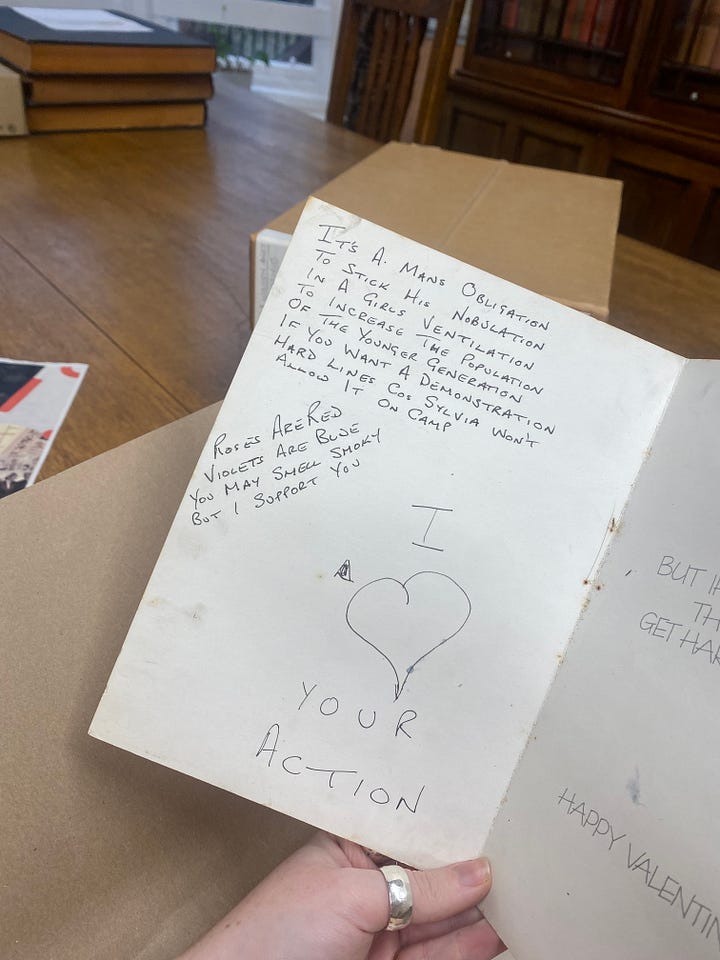 It's A. Mans Obligation
To Stick His Nobulation
In A Girls Ventilation
To Increase The Population
Of The Younger Generation
If You Want A Demonstration
Hard Lines Cos Sylvia Won't
Allow It On Camp
Roses Are Red
Violets Are Blue
You May Smell Smoky
But I Support You
I
YOUR
ACTION
BUT
GET
HAPPY